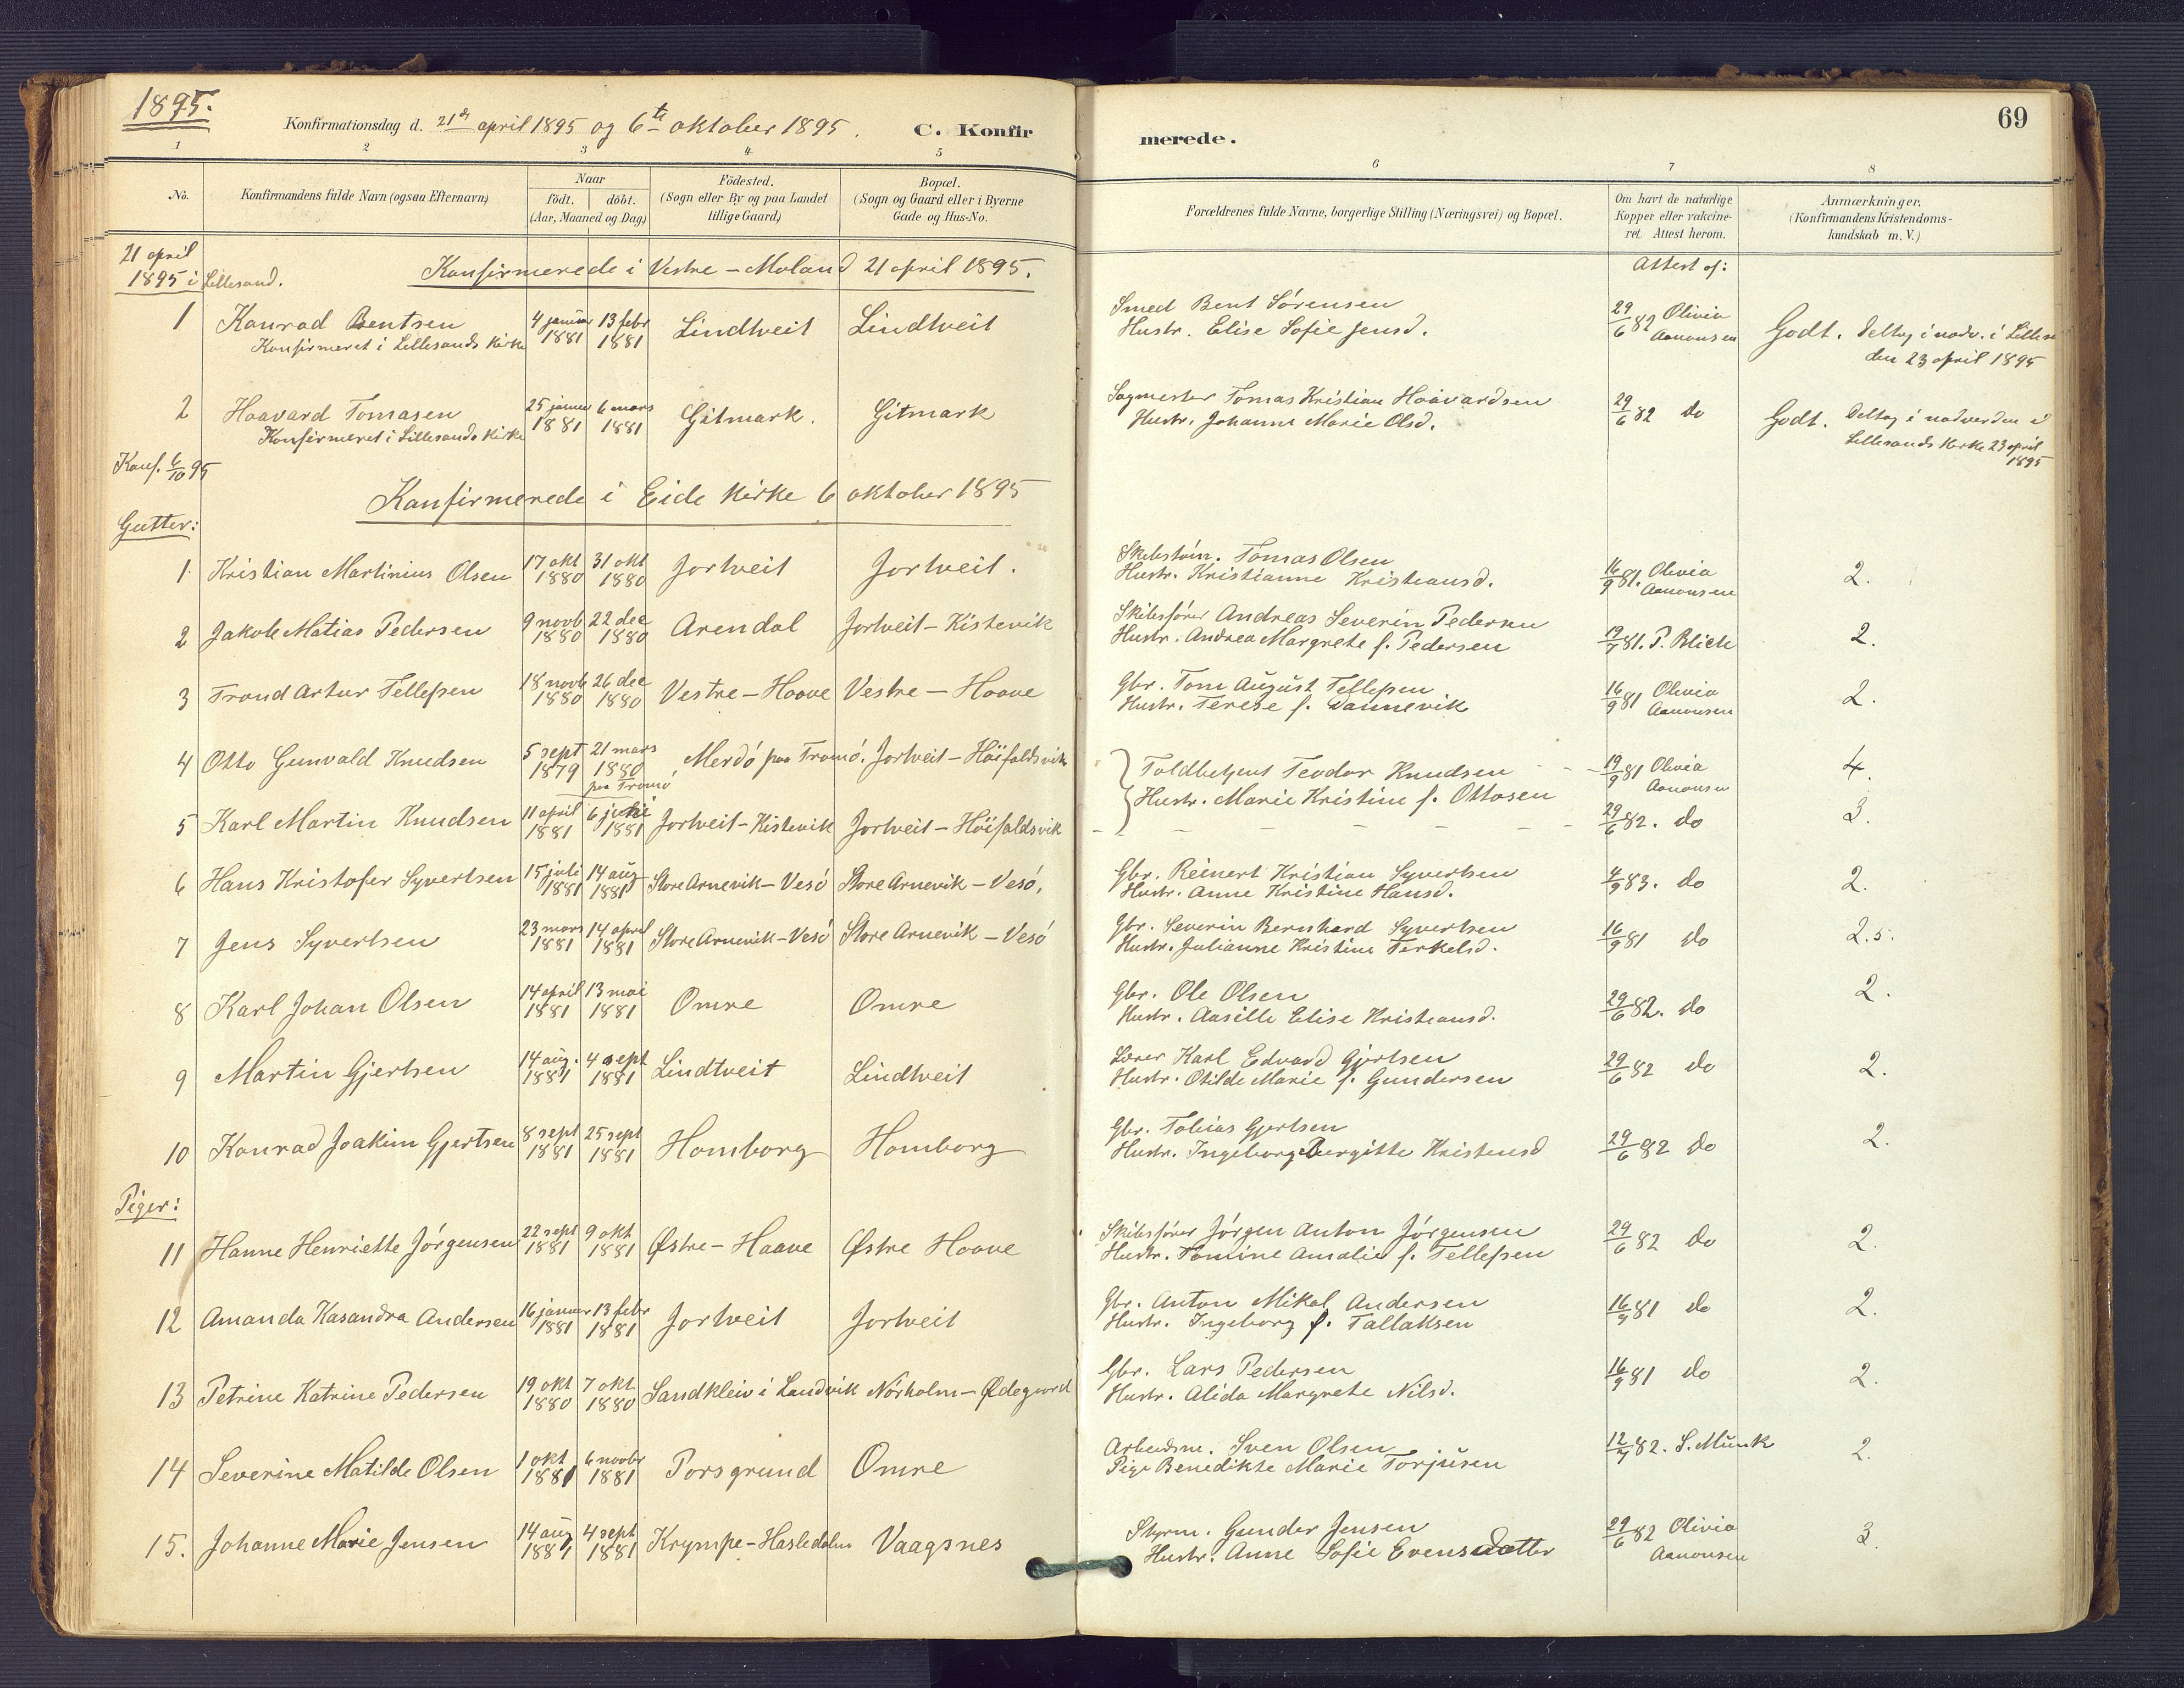 1895.
Konfirmationsdag d. 21de april 1895 og 6te oktober 1895. C. Konfirmerede. 69
1 2 3 4 5 6 7 8
No.
Konfirmandens fulde Navn (ogsaa Efternavn)
Naar
födt. döbt.
(Aar, Maaned og Dag)
Födested.
(Sogn eller By og paa Landet
tillige Gaard)
Bopæl.
(Sogn og Gaard eller i Byerne
Gade og Hus-No.
Forældrenes fulde Navne, borgerlige Stilling (Næringsvei) og Bopæl.
Om havt de naturlige
Kopper eller vakcine-
ret Attest herom.
Anmærkninger.
(Konfirmandens Kristendoms-
kundskab m. V.)
21 april
1895 i Lillesand.
Konfirmerede i Vestre-Moland 21 april 1895.
Attest af:
1 Konrad Bentsen 4 januar 1881 13 febr 1881 Lindtveit Lindtveit Smed Bent Sörensen 29/6 82 Olivia Aanonsen Godt. Deltog i nadv. i Lilles
Konfirmeret i Lillesands kirke Hustr. Elise Sofie Jensd. den 23 april 1895
2 Haavard Tomasen 25 januar 1881 6 mars 1881 Gitmark. Gitmark Sagmester Tomas Kristian Haavardsen 29/6 82 do Godt. Deltog i nadverden i
Konfirmeret i Lillesands kirke Hustr. Johanne Marie Olsd. Lillesands kirke 23 april 1895
Konf. 6/10 95
Konfirmerede i Eide kirke 6 oktober 1895
Gutter:
1 Kristian Martinius Olsen 17 okt 1880 31 okt 1880 Jortveit Jortveit. Skibstöm. Tomas Olsen 16/9 81. Olivia Aanonsen 2.
Hustr. Kristianne Kristiansd.
2 Jakob Matias Pedersen 9 novb 1880 22 dec 1880 Arendal Jortveit-Kistevik Skibsförer Andreas Severin Pedersen 19/7 81. P. Blich 2.
Hustr. Andrea Margrete f. Pedersen
3 Trond Artur Tellefsen 18 novb 1880 26 dec 1880 Vestre-Haave Vestre-Haave Gbr. Tom August Tellefsen 16/9 81 Olivia Aanonsen 2.
Hustr. Terese f. Vannevik
4 Otto Gunvald Knudsen 5 sept 1879 21 mars 1880 paa Tromö Merdö paa Tromö. Jortveit-Höifaldsvik Toldbetjent Teodor Knudsen 19/9 81 Olivia Aanonsen 4.
Hustr. Marie Kristine f. Ottosen
5 Karl Martin Knudsen 11 april 1881 6 juni 1881 Jortveit-Kistevik Jortveit-Höifaldsvik - - - - 29/6 82. do 3.
6 Hans Kristofer Syvertsen 15 juli 1881 14 aug 1881 Store Arnevik-Vesö Store Arnevik-Vesö. Gbr. Reinert Kristian Syvertsen 4/9 83. do 2.
Hustr. Anne Kristine Hansd.
7 Jens Syvertsen 23 mars 1881 14 april 1881 Store Arnevik-Vesö Store Arnevik-Vesö Gbr. Severin Bernhard Syvertsen 16/9 81 do 2.5.
Hustr. Julianne Kristine Terkelsd.
8 Karl Johan Olsen 14 april 1881 13 mai 1881 Omre Omre Gbr. Ole Olsen 29/6 82. do 2.
Hustr. Aasille Elise Kristiansd.
9 Martin Gjertsen 14 aug. 1881 4 sept 1881 Lindtveit Lindtveit Lærer Karl Edvard Gjertsen 29/6 82 do 2.
Hustr. Otilde Marie f. Gundersen
10 Konrad Joakim Gjertsen 8 sept 1881 25 sept 1881 Homborg Homborg Gbr. Tobias Gjertsen 29/6 82 do 2.
Hustr. Ingeborg Burgitte Kristensd
Piger:
11 Hanne Henriette Jörgensen 22 sept 1881 9 okt 1881 Østre-Haave Østre Haave Skibsförer Jörgen Anton Jörgensen 29/6 82 do 2.
Hustr. Tomine Amalie f. Tellefsen
12 Amanda Kasandra Andersen 16 januar 1881 13 febr 1881 Jortveit Jortveit Gbr. Anton Mikal Andersen 16/9 81 do 2.
Hustr. Ingeborg f. Tallaksen
13 Petrine Katrine Pedersen 19 okt 1880 7 okt 1880 Sandkleiv i Landvik Nörholm-Ødegaard Gbr. Lars Pedersen 16/9 81 do 2.
Hustr. Alida Margrete Nilsd.
14 Severine Matilde Olsen 1 okt 1881 6 novbr 1881 Porsgrund Omre Arbeidsm. Sven Olsen 12/7 82. S. Munk 2.
Pige Benedikte Marie Torjusen
15. Johanne Marie Jensen 14 aug 1881 4 sept 1881 Krympe-Hasledalen Vaagsnes Styrm. Gunder Jensen 29/6 82 Olivia Aanonsen 3.
Hustr. Anne Sofie Evensdatter